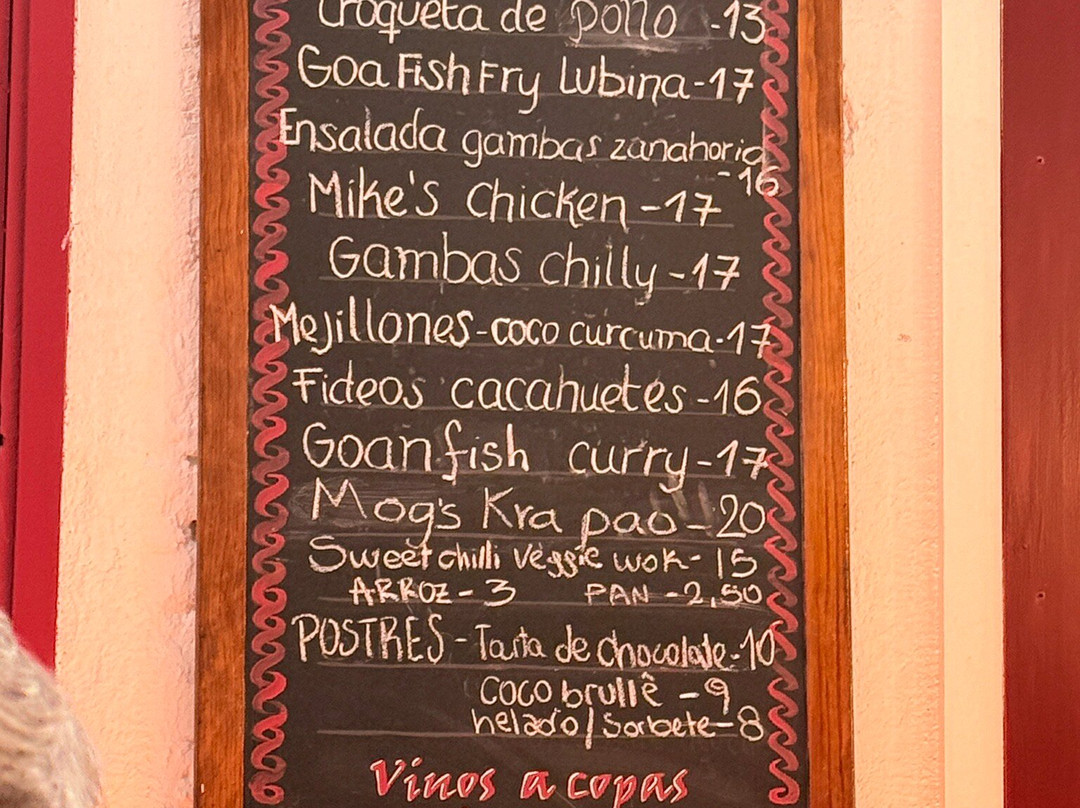 Croqueta de pollo -13
Goa Fish Fry Lubina-17
Ensalada gambas zanahoria
-16
Mike's Chicken -17
Gambas chilly -17
Mejillones-coco curcuma-17
Fideos cacahuetes -16
Goan fish curry -17
Mog's Kra pao - 20
Sweet chilli veggie wok- 15
ARROZ - 3 PAN -2,50
POSTRES - Tarta de chocolate-10
Coco brullê - 9
helado/Sorbete-8
Vinos a copas